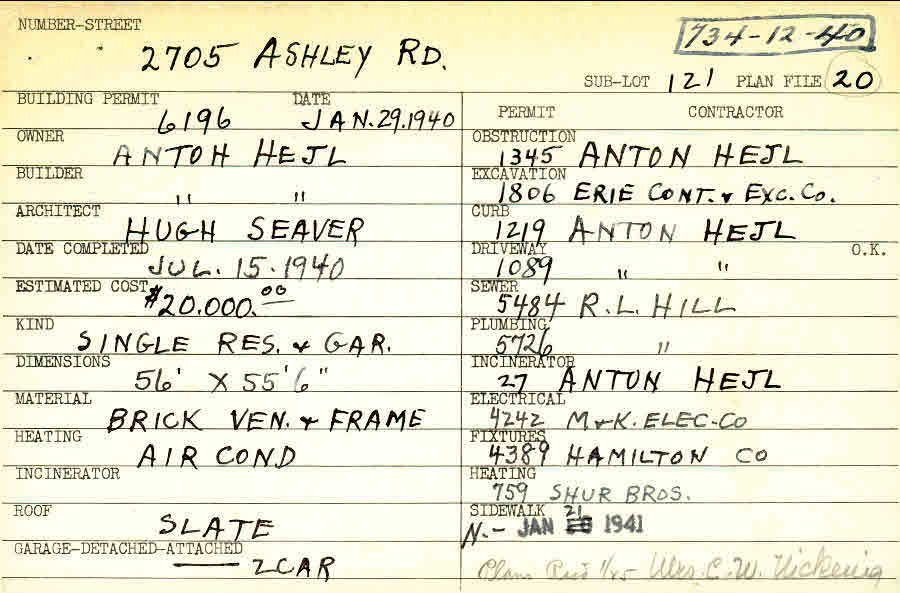 NUMBER-STREET
2705 ASHLEY RD.
734-12-40
SUB-LOT 121 PLAN FILE 20
BUILDING PERMIT DATE
6196 JAN.29.1940
OWNER
ANTOH HEJL
BUILDER
" "
ARCHITECT
HUGH SEAVER
DATE COMPLETED
JUL. 15.1940
ESTIMATED COST
$20.000.00
KIND
SINGLE RES. & GAR.
DIMENSIONS
56' X 55'6"
MATERIAL
BRICK VEN. & FRAME
HEATING
AIR COND
INCINERATOR
ROOF
SLATE
GARAGE-DETACHED-ATTACHED
2 CAR
PERMIT CONTRACTOR
OBSTRUCTION
1345 ANTON HEJL
EXCAVATION
1806 ERIE CONT. & EXC. CO.
CURB
1219 ANTON HEJL
DRIVEWAY O.K.
1089 " "
SEWER
5484 R.L. HILL
PLUMBING
5726 "
INCINERATOR
27 ANTON HEJL
ELECTRICAL
4242 M & K. ELEC-CO
FIXTURES
4389 HAMILTON CO
HEATING
759 SHUR BROS.
SIDEWALK 21
N.- JAN 1941
Plans 1/25 Mrs. C. W.